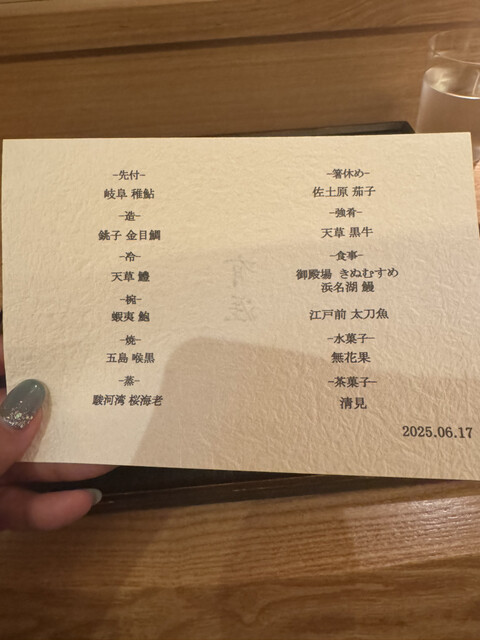 -先付-
岐阜 稚鮎
-造-
銚子 金目鯛
-冷-
天草 鱧
-椀-
蝦夷 鮑
-焼-
五島 喉黒
-蒸-
駿河湾 桜海老
-箸休め-
佐土原 茄子
-強肴-
天草 黒牛
-食事-
御殿場 きぬむすめ
浜名湖 鰻
江戸前 太刀魚
-水菓子-
無花果
-茶菓子-
清見
2025.06.17